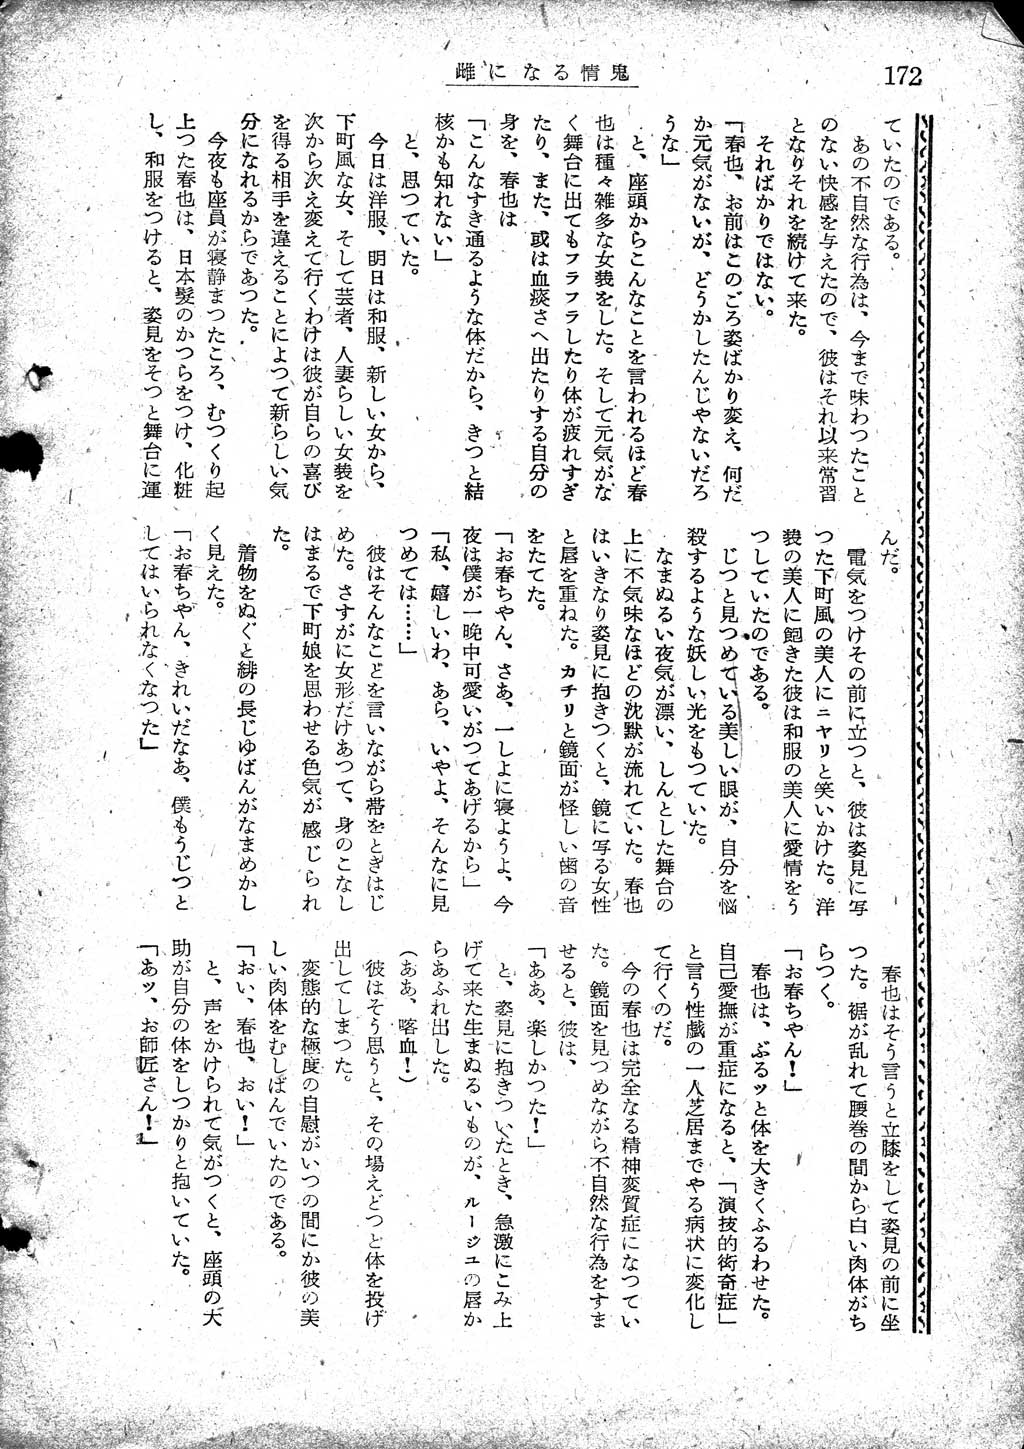 172
雌になる情鬼
ていたのである。
あの不自然な行為は、今まで味わつたこと
のない快感を与えたので、彼はそれ以来常習
となりそれを続けて来た。
そればかりではない。
「春也、お前はこのごろ姿ばかり変え、何だ
か元気がないが、どうかしたんじゃないだろ
うな」
と、座頭からこんなことを言われるほど春
也は種々雑多な女装をした。そして元気がな
く舞台に出てもフラフラしたり体が疲れすぎ
たり、また、或は血痰さへ出たりする自分の
身を、春也は
「こんなすき通るような体だから、きつと結
核かも知れない」
と、思つていた。
今日は洋服、明日は和服、新しい女から、
下町風な女、そして芸者、人妻らしい女装を
次から次え変えて行くわけは彼が自らの喜び
を得る相手を違えることによつて新らしい気
分になれるからであつた。
今夜も座員が寝静まつたころ、むつくり起
上つた春也は、日本髪のかつらをつけ、化粧
し、和服をつけると、姿見をそつと舞台に運
んだ。
電気をつけその前に立つと、彼は姿見に写
つた下町風の美人にニヤリと笑いかけた。洋
装の美人に飽きた彼は和服の美人に愛情をう
つしていたのである。
じつと見つめている美しい眼が、自分を悩
殺するような妖しい光をもつていた。
なまぬるい夜気が漂い、しんとした舞台の
上に不気味なほどの沈黙が流れていた。春也
はいきなり姿見に抱きつくと、鏡に写る女性
と唇を重ねた。カチリと鏡面が怪しい歯の音
をたてた。
「お春ちやん、さあ、一しよに寝ようよ、今
夜は僕が一晩中可愛いがつてあげるから」
「私、嬉しいわ、あら、いやよ、そんなに見
つめては……」
彼はそんなことを言いながら帯をときはじ
めた。さすがに女形だけあつて、身のこなし
はまるで下町娘を思わせる色気が感じられ
た。
着物をぬぐと緋の長じゆばんがなまめかし
く見えた。
「お春ちやん、きれいだなあ、僕もうじつと
してはいられなくなつた」
春也はそう言うと立膝をして姿見の前に坐
つた。裾が乱れて腰巻の間から白い肉体がち
らつく。
「お春ちやん！」
春也は、ぶるッと体を大きくふるわせた。
自己愛撫が重症になると、「演技的術奇症」
と言う性戯の一人芝居までやる病状に変化し
て行くのだ。
今の春也は完全なる精神変質症になつてい
た。鏡面を見つめながら不自然な行為をすま
せると、彼は、
「ああ、楽しかつた！」
と、姿見に抱きついたとき、急激にこみ上
げて来た生まぬるいものが、ルージュの唇か
らあふれ出した。
（ああ、喀血！）
彼はそう思うと、その場えどつと体を投げ
出してしまつた。
変態的な極度の自慰がいつの間にか彼の美
しい肉体をむしばんでいたのである。
「おい、春也、おい！」
と、声をかけられて気がつくと、座頭の大
助が自分の体をしつかりと抱いていた。
「あッ、お師匠さん！」